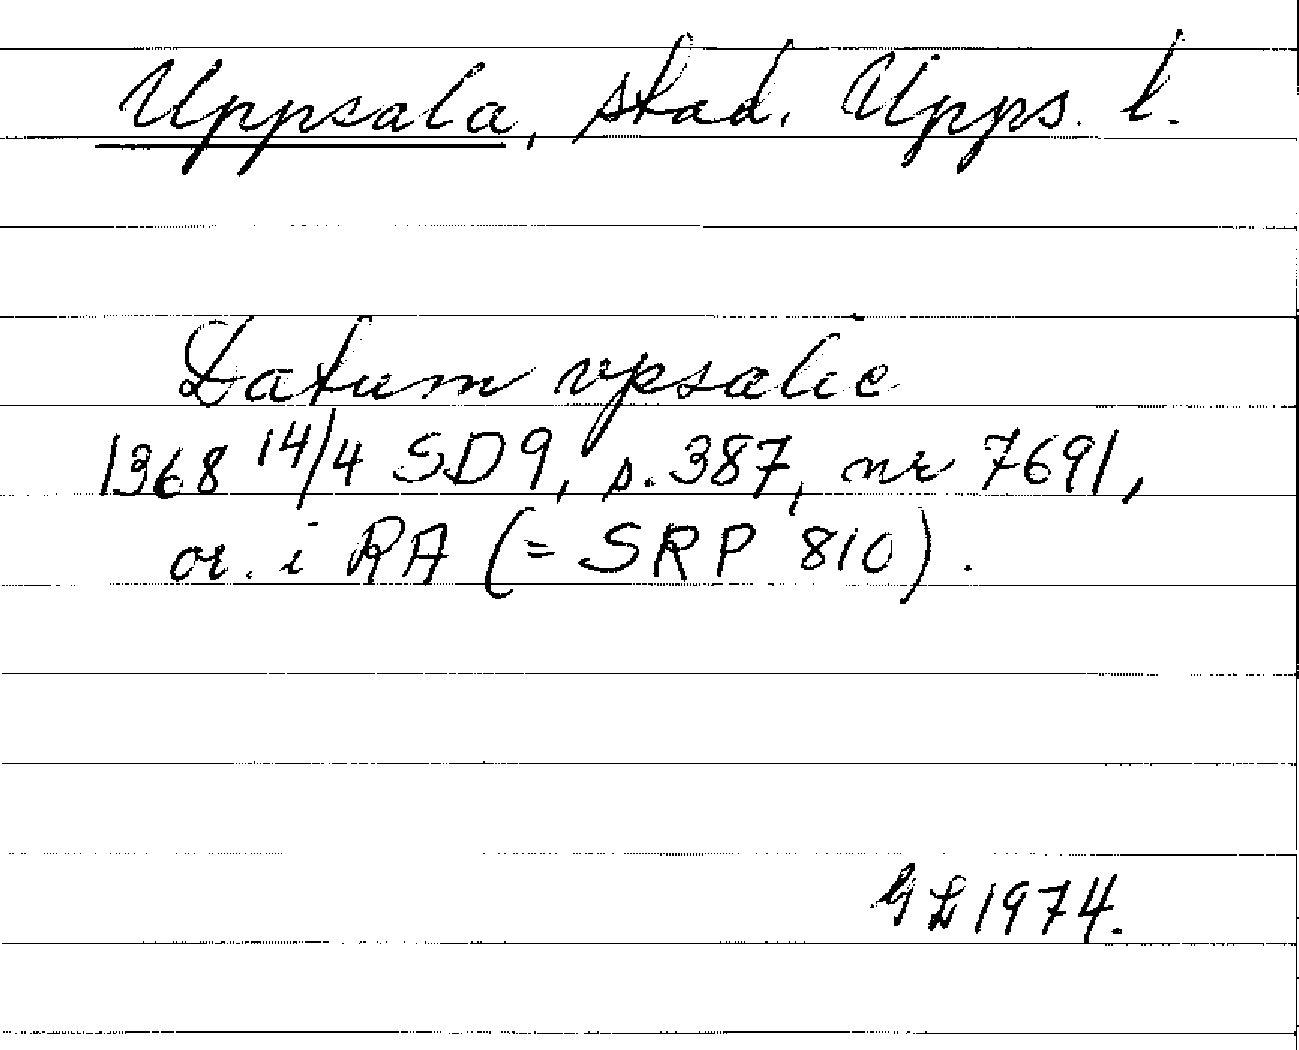 Uppsala, stad. Upps. l.
Datum vpsalie
1368 14/4 SD9, s. 387, nr 7691,
or. i RA (= SRP 810).
GL 1974.